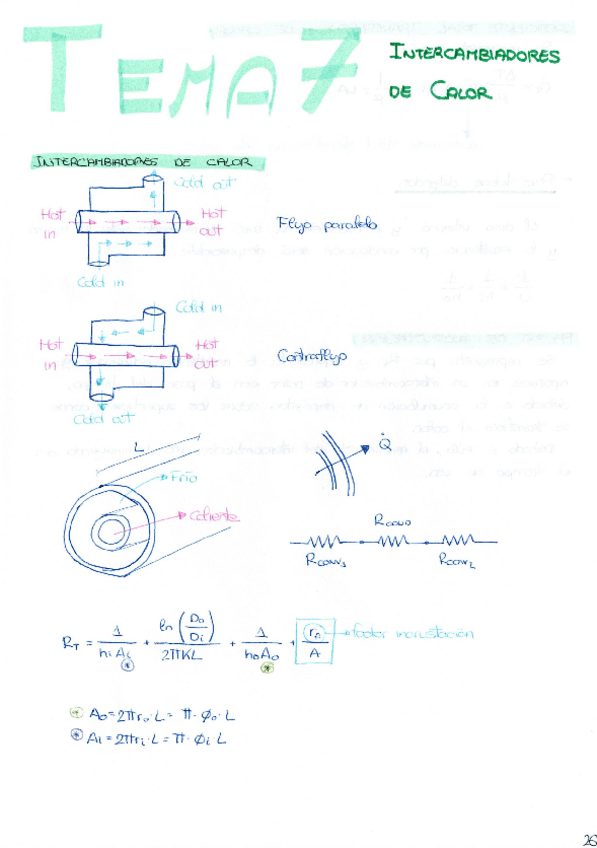 TEMA 7
INTERCAMBIADORES
DE CALOR
INTERCAMBIADORES DE CALOR
Cold out
Hot in
Hot out
Flujo paralelo
Cold in
Cold in
Hot in
Hot out
Contraflujo
Cold out
L
Frío
Caliente
Q̇
Rcond
Rconv₁
Rconv₂
R_T = 1/(hi Ai) + ln(Do/Di)/(2πKL) + 1/(ho Ao) + rd/A → factor incrustación
* Ao = 2πro·L = π·ϕo·L
* Ai = 2πri·L = π·ϕi·L
26